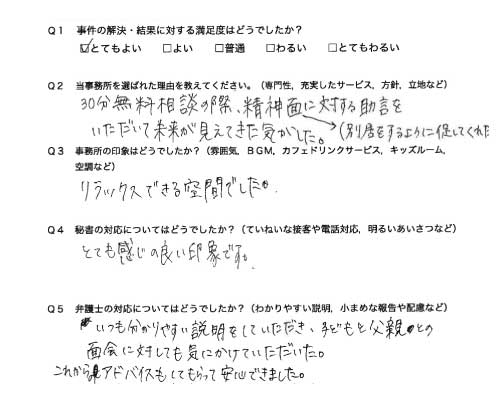 Q1 事件の解決・結果に対する満足度はどうでしたか？
☑とてもよい □よい □普通 □わるい □とてもわるい
Q2 当事務所を選ばれた理由を教えてください。（専門性，充実したサービス，方針，立地など）
30分無料相談の際、精神面に対する助言を
いただいて未来が見えてきた気がした。→(別居をするように促してくれた
Q3 事務所の印象はどうでしたか？（雰囲気，BGM，カフェドリンクサービス，キッズルーム，
空調など）
リラックスできる空間でした。
Q4 秘書の対応についてはどうでしたか？（ていねいな接客や電話対応，明るいあいさつなど）
とても感じの良い印象です。
Q5 弁護士の対応についてはどうでしたか？（わかりやすい説明，小まめな報告や配慮など）
いつも分かりやすい説明をしていただき、子どもと父親との
面会に対しても気にかけていただいた。
これから アドバイスもしてもらって安心できました。